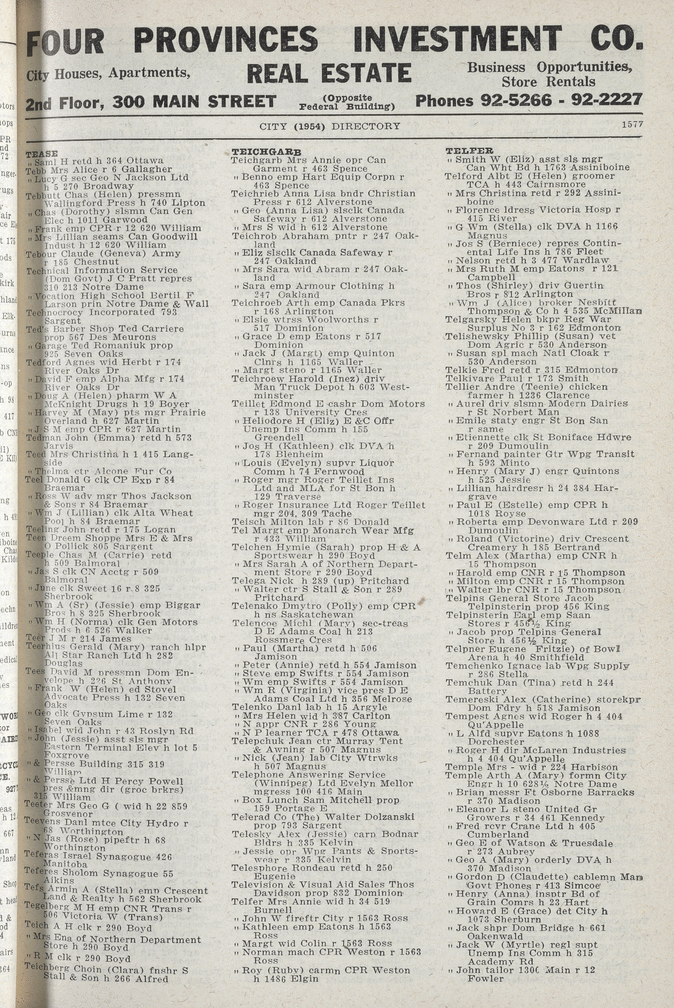 FOUR PROVINCES INVESTMENT CO.
City Houses, Apartments,
REAL ESTATE
Business Opportunities,
Store Rentals
2nd Floor, 300 MAIN STREET
(Opposite
Federal Building)
Phones 92-5266 - 92-2227
CITY (1954) DIRECTORY
1577
TEASE
" Saml H retd h 364 Ottawa
Tebb Mrs Alice r 6 Gallagher
" Lucy G sec Geo N Jackson Ltd
h 5 270 Broadway
Tebbutt Chas (Helen) pressmn
Wallingford Press h 740 Lipton
" Chas (Dorothy) slsmn Can Gen
Elec h 1011 Garwood
" Frank emp CPR r 12 620 William
" Mrs Lillian seams Can Goodwill
Indust h 12 620 William
Tebour Claude (Geneva) Army
r 185 Chestnut
Technical Information Service
(Dom Govt) J C Pratt repres
310 213 Notre Dame
" Vocation High School Bertil F
Larson prin Notre Dame & Wall
Technocracy Incorporated 793
Sargent
Ted's Barber Shop Ted Carriere
prop 567 Des Meurons
" Garage Ted Romaniuk prop
925 Seven Oaks
Tedford Agnes wid Herbt r 174
River Oaks Dr
" David F emp Alpha Mfg r 174
River Oaks Dr
" Doug A (Helen) pharm W A
McKnight Drugs h 19 Boyer
" Harvey M (May) pts mgr Prairie
Overland h 627 Martin
" J S M emp CPR r 627 Martin
Tedman John (Emma) retd h 573
Jarvis
Teed Mrs Christina h 1 415 Lang-
side
" Thelma ctr Alcone Fur Co
Teel Donald G clk CP Exp r 84
Braemar
" Ross W adv mgr Thos Jackson
& Sons r 84 Braemar
" Wm J (Lillian) clk Alta Wheat
Pool h 84 Braemar
Teeling John retd r 175 Logan
Teen Dreem Shoppe Mrs E & Mrs
O Pollick 805 Sargent
Teeple Chas M (Carrie) retd
h 509 Balmoral
" Jas S clk CN Acctg r 509
Balmoral
" June clk Sweet 16 r 8 325
Sherbrook
" Wm A (Sr) (Jessie) emp Biggar
Bros h 8 325 Sherbrook
" Wm H (Norma) clk Gen Motors
Prods h 6 526 Walker
Teer J M r 214 James
Teerhuis Gerald (Mary) ranch hlpr
All Star Ranch Ltd h 282
Douglas
Tees David M pressmn Dom En-
velope h 276 St Anthony
" Frank W (Helen) ed Stovel
Advocate Press h 132 Seven
Oaks
" Geo clk Gypsum Lime r 132
Seven Oaks
" Isabel wid John r 43 Roslyn Rd
" John (Jessie) asst sls mgr
Eastern Terminal Elev h lot 5
Foxgrove
" & Persse Building 315 319
William
" & Persse Ltd H Percy Powell
pres &mng dir (groc brkrs)
315 William
Teeter Mrs Geo G ( wid h 22 859
Grosvenor
Teevens Danl mtce City Hydro r
68 Worthington
" N Jas (Rose) pipeftr h 68
Worthington
Teferas Israel Synagogue 426
Manitoba
Teferes Sholom Synagogue 55
Aikins
Teffs Armin A (Stella) emp Crescent
Land & Realty h 562 Sherbrook
Tegelberg M H emp CNR Trans r
506 Victoria W (Trans)
Teich A H clk r 290 Boyd
" Mrs Ena of Northern Department
Store h 290 Boyd
" R M clk r 290 Boyd
Teichberg Choin (Clara) fnshr S
Stall & Son h 266 Alfred
TEICHGARB
Teichgarb Mrs Annie opr Can
Garment r 463 Spence
" Benno emp Hart Equip Corpn r
463 Spence
Teichrieb Anna Lisa bndr Christian
Press r 612 Alverstone
" Geo (Anna Lisa) slsclk Canada
Safeway r 612 Alverstone
" Mrs S wid h 612 Alverstone
Teichrob Abraham pntr r 247 Oak-
land
" Eliz slsclk Canada Safeway r
247 Oakland
" Mrs Sara wid Abram r 247 Oak-
land
" Sara emp Armour Clothing h
247 Oakland
Teichroeb Arth emp Canada Pkrs
r 168 Arlington
" Elsie wtrss Woolworths r
517 Dominion
" Grace D emp Eatons r 517
Dominion
" Jack J (Margt) emp Quinton
Clnrs h 1165 Waller
" Margt steno r 1165 Waller
Teichroew Harold (Inez) driv
Man Truck Depot h 603 West-
minster
Teillet Edmond E cashr Dom Motors
r 138 University Cres
" Heliodore H (Eliz) E&C Offr
Unemp Ins Comm h 155
Greendell
" Jos H (Kathleen) clk DVA h
178 Blenheim
" Louis (Evelyn) supvr Liquor
Comm h 74 Fernwood
" Roger mgr Roger Teillet Ins
Ltd and MLA for St Bon h
129 Traverse
" Roger Insurance Ltd Roger Teillet
mgr 204, 309 Tache
Teisch Milton lab r 86 Donald
Tel Margt emp Monarch Wear Mfg
r 433 William
Telchen Hymie (Sarah) prop H & A
Sportswear h 290 Boyd
" Mrs Sarah A of Northern Depart-
ment Store r 290 Boyd
Telega Nick h 289 (up) Pritchard
" Walter ctr S Stall & Son r 289
Pritchard
Telenako Dmytro (Polly) emp CPR
h ns Saskatchewan
Telencoe Michl (Mary) sec-treas
D E Adams Coal h 213
Rossmere Cres
" Paul (Martha) retd h 506
Jamison
" Peter (Annie) retd h 554 Jamison
" Steve emp Swifts r 554 Jamison
" Wm emp Swifts r 554 Jamison
" Wm R (Virginia) vice pres D E
Adams Coal Ltd h 256 Melrose
Telenko Danl lab h 15 Argyle
" Mrs Helen wid h 387 Carlton
" N appr CNR r 286 Young
" N P learner TCA r 478 Ottawa
Telepchuk Jean ctr Murray Tent
& Awning r 507 Magnus
" Nick (Jean) lab City Wtrwks
h 507 Magnus
Telephone Answering Service
(Winnipeg) Ltd Evelyn Mellor
mgress 100 416 Main
" Box Lunch Sam Mitchell prop
159 Portage E
Telerad Co (The) Walter Dolzanski
prop 793 Sargent
Telesky Alex (Jessie) carp Bodnar
Bldrs h 335 Kelvin
" Jessie opr Wpg Pants & Sports-
wear r 335 Kelvin
Telesphore Rondeau retd h 250
Eugenie
Television & Visual Aid Sales Thos
Davidson prop 832 Dominion
Telfer Mrs Annie wid h 34 519
Burnell
" John W fireftr City r 1563 Ross
" Kathleen emp Eatons h 1563
Ross
" Margt wid Colin r 1563 Ross
" Norman mach CPR Weston r 1563
Ross
" Roy (Ruby) carmn CPR Weston
h 1486 Elgin
TELFER
" Smith W (Eliz) asst sls mgr
Can Wht Bd h 1763 Assiniboine
Telford Albt E (Helen) groomer
TCA h 443 Cairnsmore
" Mrs Christina retd r 292 Assini-
boine
" Florence ldress Victoria Hosp r
415 River
" G Wm (Stella) clk DVA h 1166
Magnus
" Jos S (Berniece) repres Contin-
ental Life Ins h 786 Fleet
" Nelson retd h 3 477 Wardlaw
" Mrs Ruth M emp Eatons r 121
Campbell
" Thos (Shirley) driv Guertin
Bros r 812 Arlington
" Wm J (Alice) broker Nesbitt
Thompson & Co h 4 535 McMillan
Telgarsky Helen bkpr Reg War
Surplus No 3 r 162 Edmonton
Telishewsky Phillip (Susan) vet
Dom Agric r 530 Anderson
" Susan spl mach Natl Cloak r
530 Anderson
Telkie Fred retd r 315 Edmonton
Telkivare Paul r 173 Smith
Tellier Andre (Teenie) chicken
farmer h 1236 Clarence
" Aurel driv slsmn Modern Dairies
r St Norbert Man
" Emile staty engr St Bon San
r same
" Etiennette clk St Boniface Hdwre
r 209 Dumoulin
" Fernand painter Gtr Wpg Transit
h 593 Minto
" Henry (Mary J) engr Quintons
h 525 Jessie
" Lillian hairdresr h 24 384 Har-
grave
" Paul E (Estelle) emp CPR h
1018 Royse
" Roberta emp Devonware Ltd r 209
Dumoulin
" Roland (Victorine) driv Crescent
Creamery h 185 Bertrand
Telm Alex (Martha) emp CNR h
15 Thompson
" Harold emp CNR r 15 Thompson
" Milton emp CNR r 15 Thompson
" Walter lbr CNR r 15 Thompson
Telpins General Store Jacob
Telpinsterin prop 456 King
Telpinsterin Earl emp Saan
Stores r 456½ King
" Jacob prop Telpins General
Store h 456½ King
Telpner Eugene Fritzie) of Bowl
Arena h 40 Smithfield
Temchenko Ignace lab Wpg Supply
r 286 Stella
Temchuk Dan (Tina) retd h 244
Battery
Temereski Alex (Catherine) storekpr
Dom Fdry h 518 Jamison
Tempest Agnes wid Roger h 4 404
Qu'Appelle
" L Alfd supvr Eatons h 1088
Dorchester
" Roger H dir McLaren Industries
h 4 404 Qu'Appelle
Temple Mrs - wid r 224 Harbison
Temple Arth A (Mary) formn City
Engr h 10 628½ Notre Dame
" Brian messr Ft Osborne Barracks
r 370 Madison
" Eleanor L steno United Gr
Growers r 34 461 Kennedy
" Fred rcvr Crane Ltd h 405
Cumberland
" Geo E of Watson & Truesdale
r 273 Aubrey
" Geo A (Mary) orderly DVA h
370 Madison
" Gordon D (Claudette) cablemn Man
Govt Phones r 413 Simcoe
" Henry (Anna) insptr Bd of
Grain Comrs h 23 Hart
" Howard E (Grace) det City h
1073 Sherburn
" Jack shpr Dom Bridge h 661
Oakenwald
" Jack W (Myrtle) regl supt
Unemp Ins Comm h 315
Academy Rd
" John tailor 1300 Main r 12
Fowler